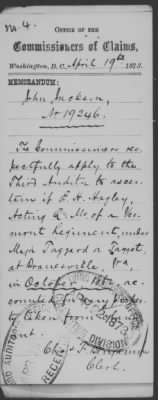 No. 4.
OFFICE OF THE
Commissioners of Claims,
Washington, D. C., April 19th 1873.
MEMORANDUM:
John Jackson,
No 19246.
The Commissioners res-
pectfully apply to the
Third Auditor to ascer-
tain if E. H. Hagley,
Acting Q. M. of a Ver-
mont Regiment, under
Major Taggard or Taggot,
at Dranesville, Va,
in October 1862 ac-
counted for any
taken from
ant.
Chas. F. Benjamin
Clerk.